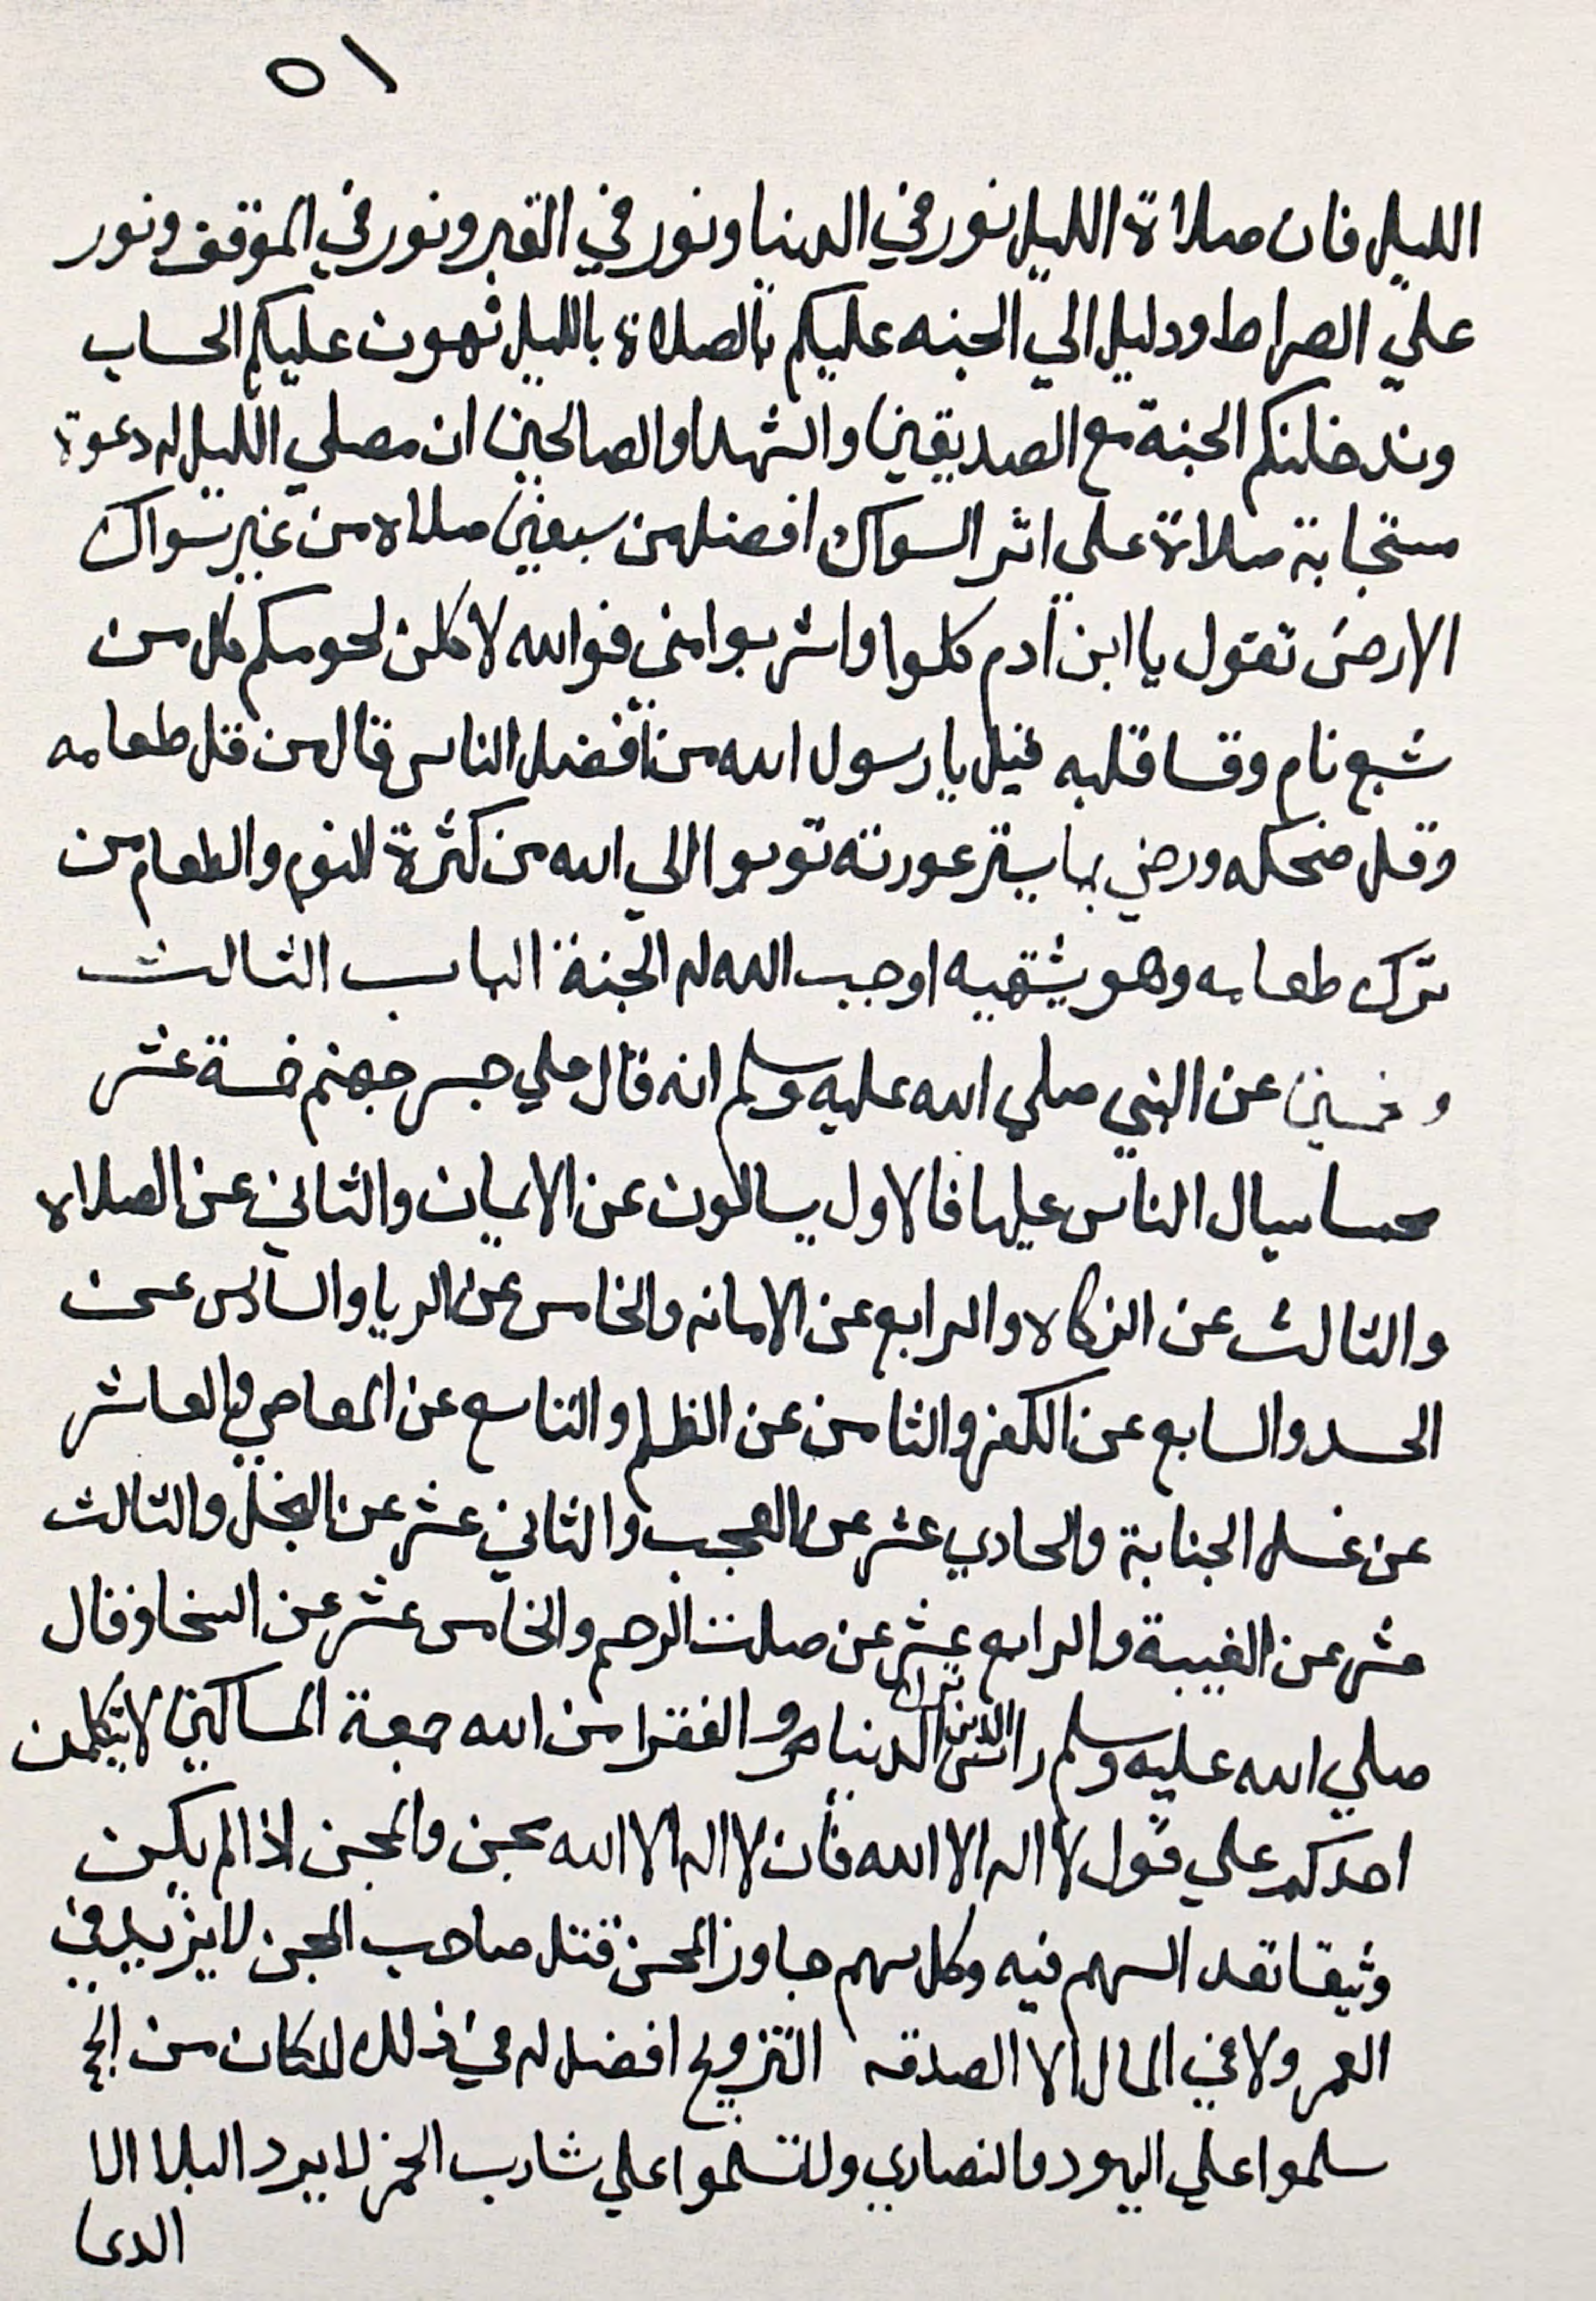 ٥١
الليل فان صلاة الليل نور في الدنيا ونور في القبر ونور في الموقف ونور
علي الصراط ودليل الي الجنه عليكم بالصلاة بالليل تهون عليكم الحساب
وتدخلنكم الجنة مع الصديقين والشهدا والصالحين ان مصلي الليل له دعوة
مستجابة صلاة علي اثر السواك افضل من سبعين صلاه من غير سواك
الارض تقول يا ابن ادم كلوا واشربوا مني فوالله لاكلن لحومكم كل من
شبع نام وقسا قلبه قيل يا رسول الله من افضل الناس قال من قل طعامه
وقل ضحكه ورضي بما يستر عورته توبوا الي الله من كثرة النوم والطعام من
ترك طعامه وهو يشتهيه اوجب الله له الجنة الباب الثالث
وخمسين عن النبي صلي الله عليه وسلم انه قال علي جسر جهنم خمسة عشر
محبسا يسال الناس عليها فالاول يسالون عن الايمان والثاني عن الصلاه
والثالث عن الزكاه والرابع عن الامانه والخامس عن الريا والسادس عن
الحسد والسابع عن الكفر والثامن عن الظلم والتاسع عن المعاصي والعاشر
عن غسل الجنابة والحادي عشر عن العجب والثاني عشر عن البخل والثالث
عشر عن الغيبة والرابع عشر عن صلت الرحم والخامس عشر عن السخا وقال
صلي الله عليه وسلم راس الدين ترك الدنيا والفقرا من الله جمعة المساكين لا يتكلمن
احدكم علي قول لا اله الا الله فان لا اله الا الله مجن والمجن اذا لم يكن
وثيقا نفد السهم فيه وكل سهم جاوز المجن قتل صاحب المجن لا يزيد في
العمر ولا في المال الا الصدقه التزويج افضل له في ذلك المكان من الحج
سلموا علي اليهود والنصاري ولا تسلموا علي شارب الخمر لا يرد البلا الا
الدعا